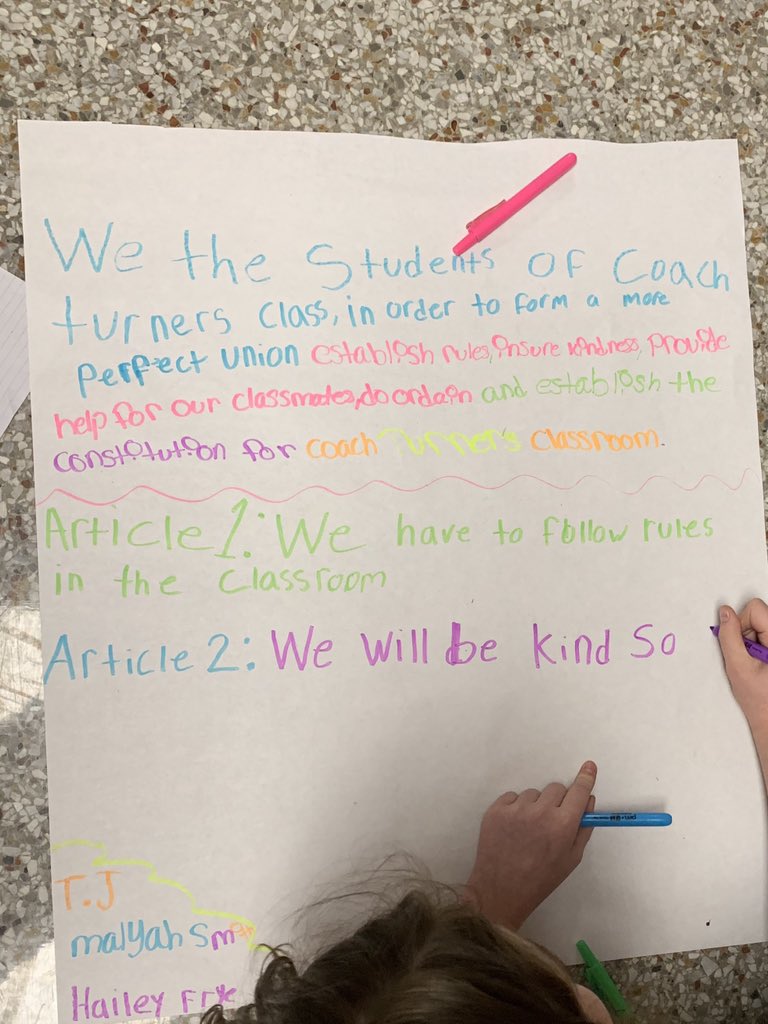 We the Students OF Coach
turners Class, in order to form a more
perfect union establish rules, insure kindness, provide
help for our classmates, do ordain and establish the
constitution for coach Turner's classroom.
Article 1: We have to follow rules
in the classroom
Article 2: We will be kind So
T.J
malyah Smith
Hailey Frye